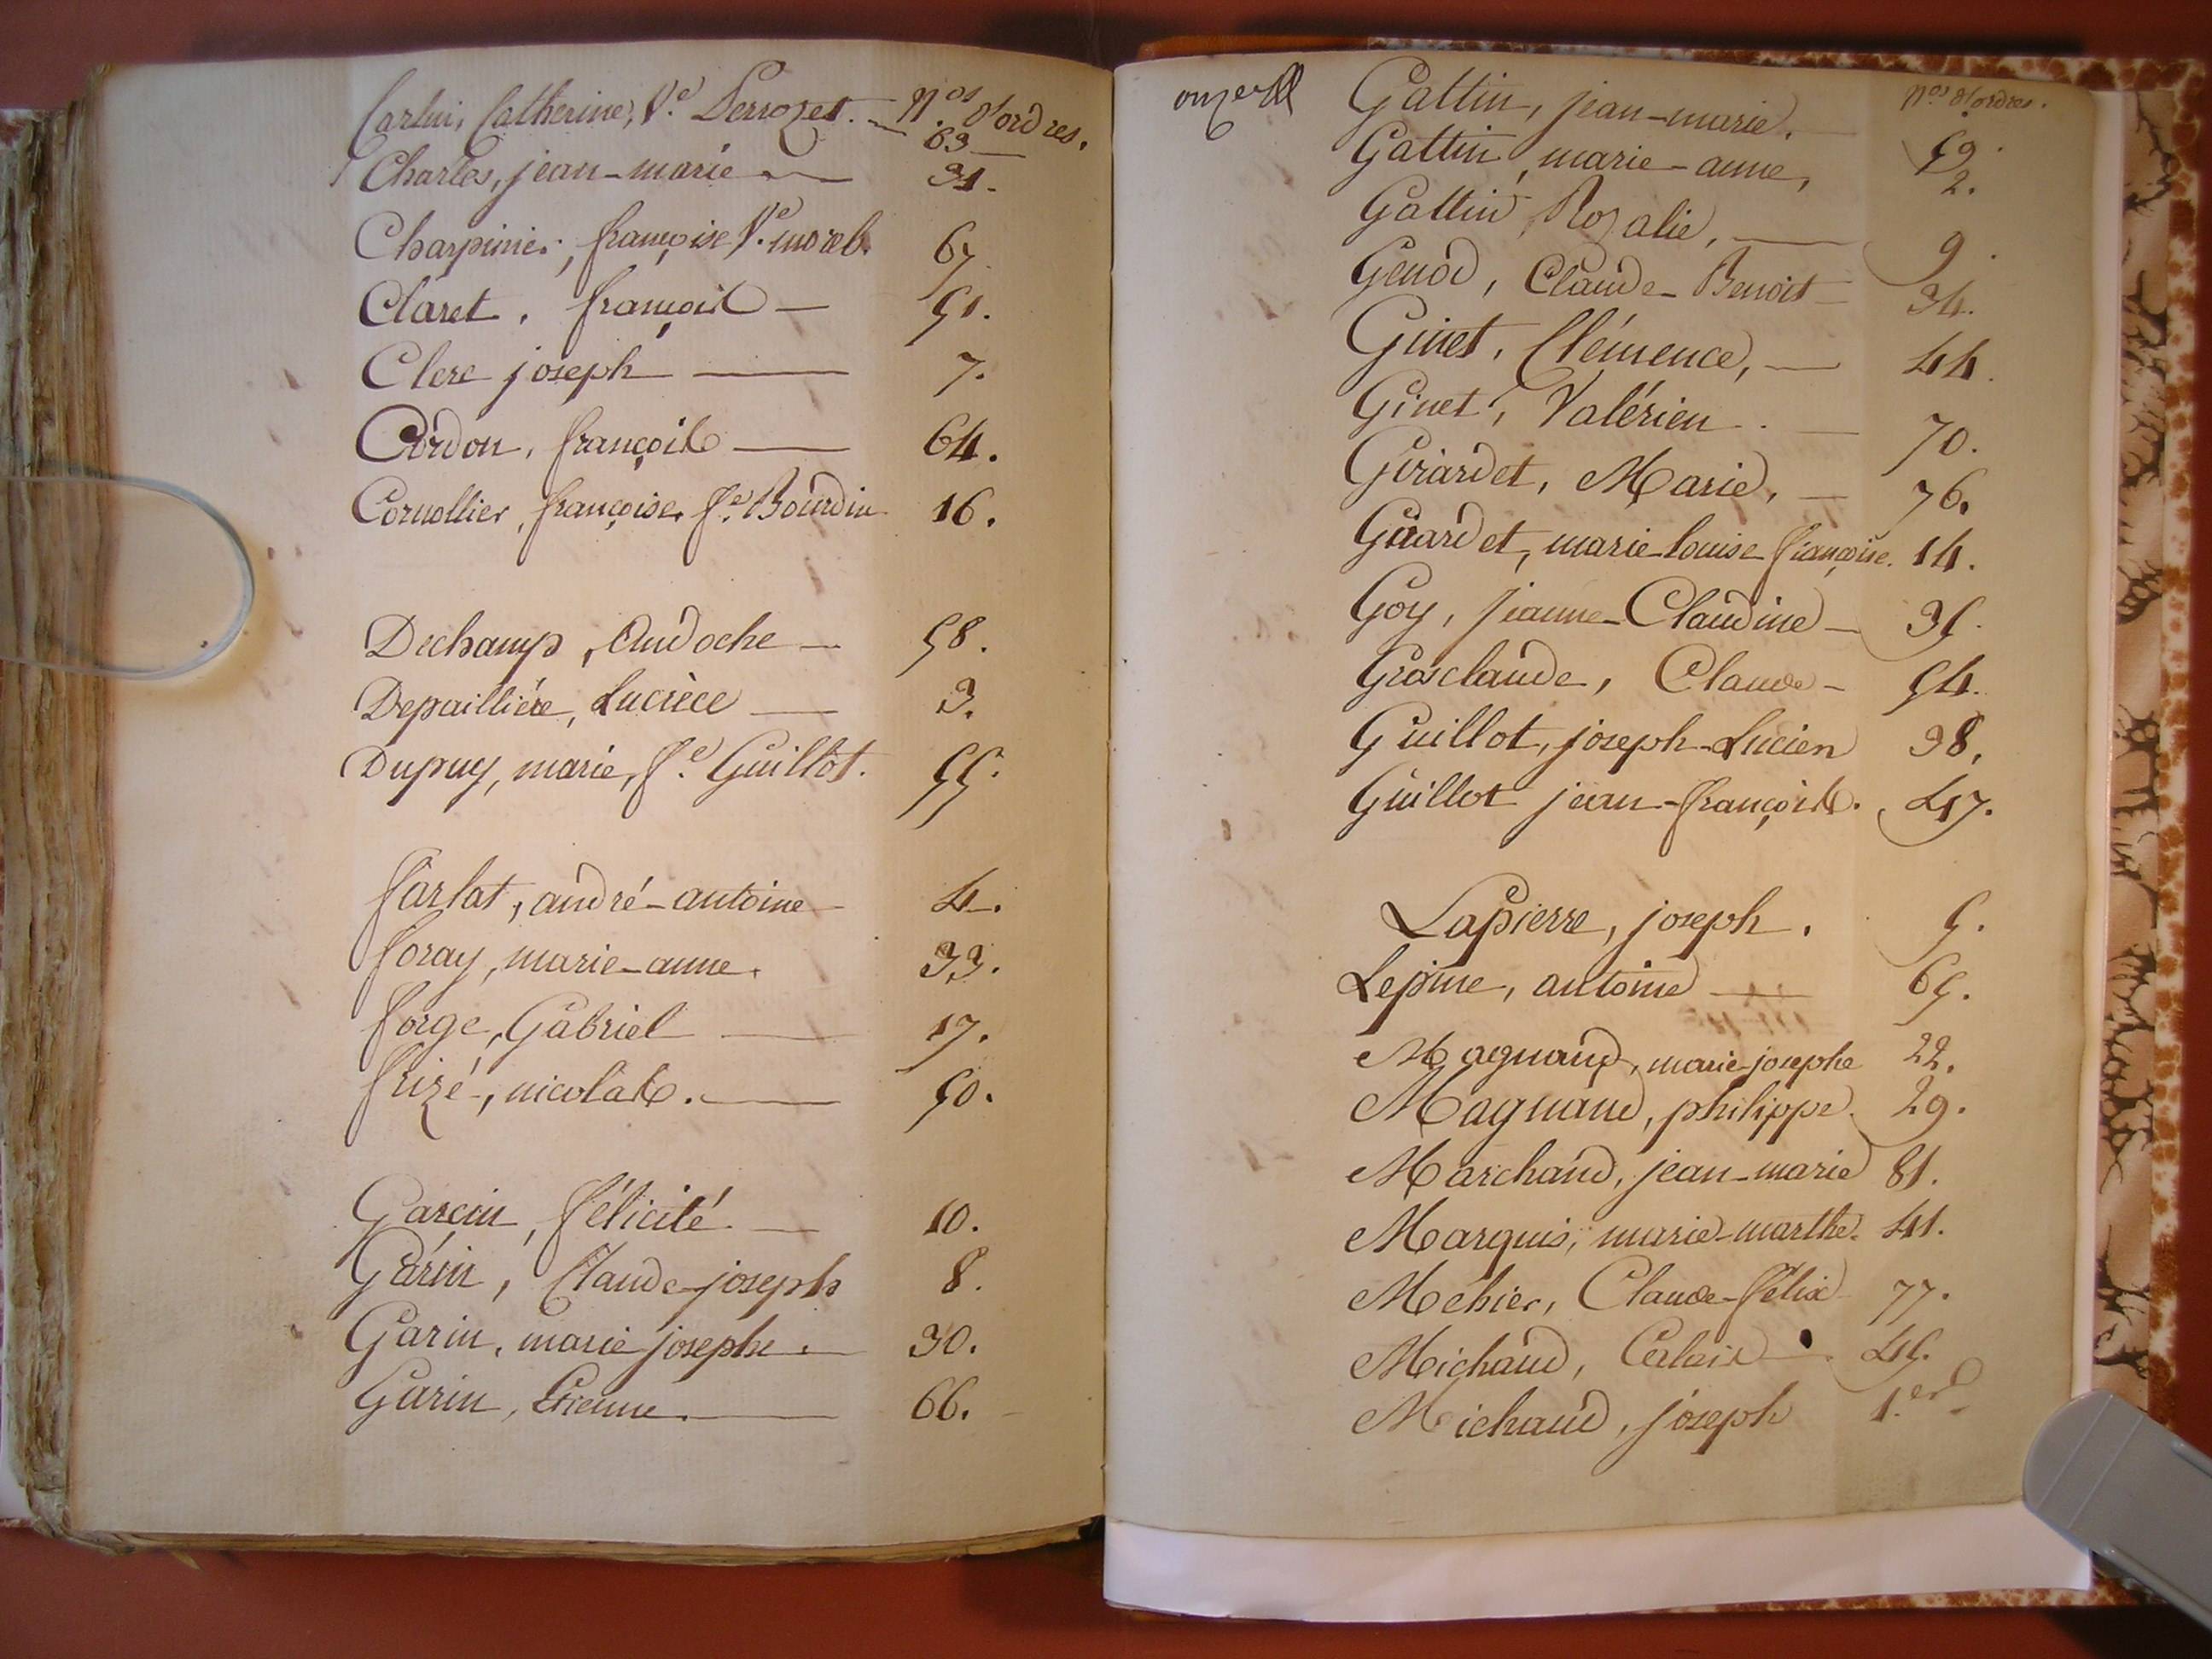 Carlin, Catherine, Ve. Perrozet. — Nos. d'ordres.
63
Charles, jean-marie — 31.
Charpinier, françoise Ve. morel. 67.
Claret, françois — 51.
Clerc joseph — 7.
Cordon, françois — 64.
Cornollier, françoise, fe. Bourdin 16.
Dechamp, Andoche — 58.
Depaillière, Lucrèce — 3.
Dupuy, marie, fe. Guillot. 55.
farlat, andré-antoine 4.
foray, marie-anne. 33.
forge, Gabriel — 17.
frizé, nicolas. — 50.
Garcin, félicité. — 10.
Garin, Claude-joseph 8.
Garin, marie josephe. 30.
Garin, Etienne. — 66.
onze
Nos. d'ordres.
Gattin, jean-marie. 59.
Gattin, marie-anne, 2.
Gattin Rozalie, — 9.
Genod, Claude-Benoit 34.
Ginet, Clémence, — 44.
Ginet, Valérien. — 70.
Girardet, Marie, — 76.
Girardet, marie louise françoise. 14.
Goy, jeanne-Claudine — 35.
Grosclaude, Claude - 54.
Guillot, joseph-Lucien 38.
Guillot jean-françois. 47.
Lapierre, joseph. 5.
Lepine, antoine — 65.
Magnand, marie-josephe 22.
Magnand, philippe. 29.
Marchand, jean-marie 81.
Marquis, marie-marthe. 41.
Méhier, Claude-félix 77.
Michaud, 45.
Michaud, joseph 1.er